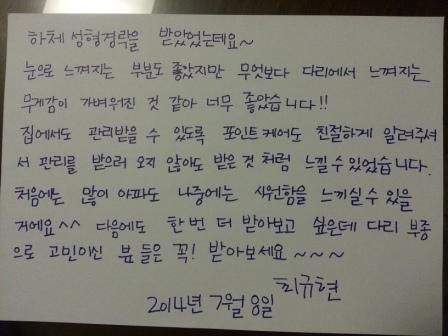 하체 성형경락을 받았었는데요~
눈으로 느껴지는 부분도 좋았지만 무엇보다 다리에서 느껴지는
무게감이 가벼워진 것 같아 너무 좋았습니다!!
집에서도 관리받을 수 있도록 포인트케어도 친절하게 알려주셔
서 관리를 받으러 오지 않아도 받은것 처럼 느낄수있었습니다.
처음에는 많이 아파도 나중에는 시원함을 느끼실 수 있을
거에요^^ 다음에도 한번 더 받아보고 싶은데 다리 부종
으로 고민이신 분들은 꼭! 받아보세요~~~
최규현
2014년 7월 8일